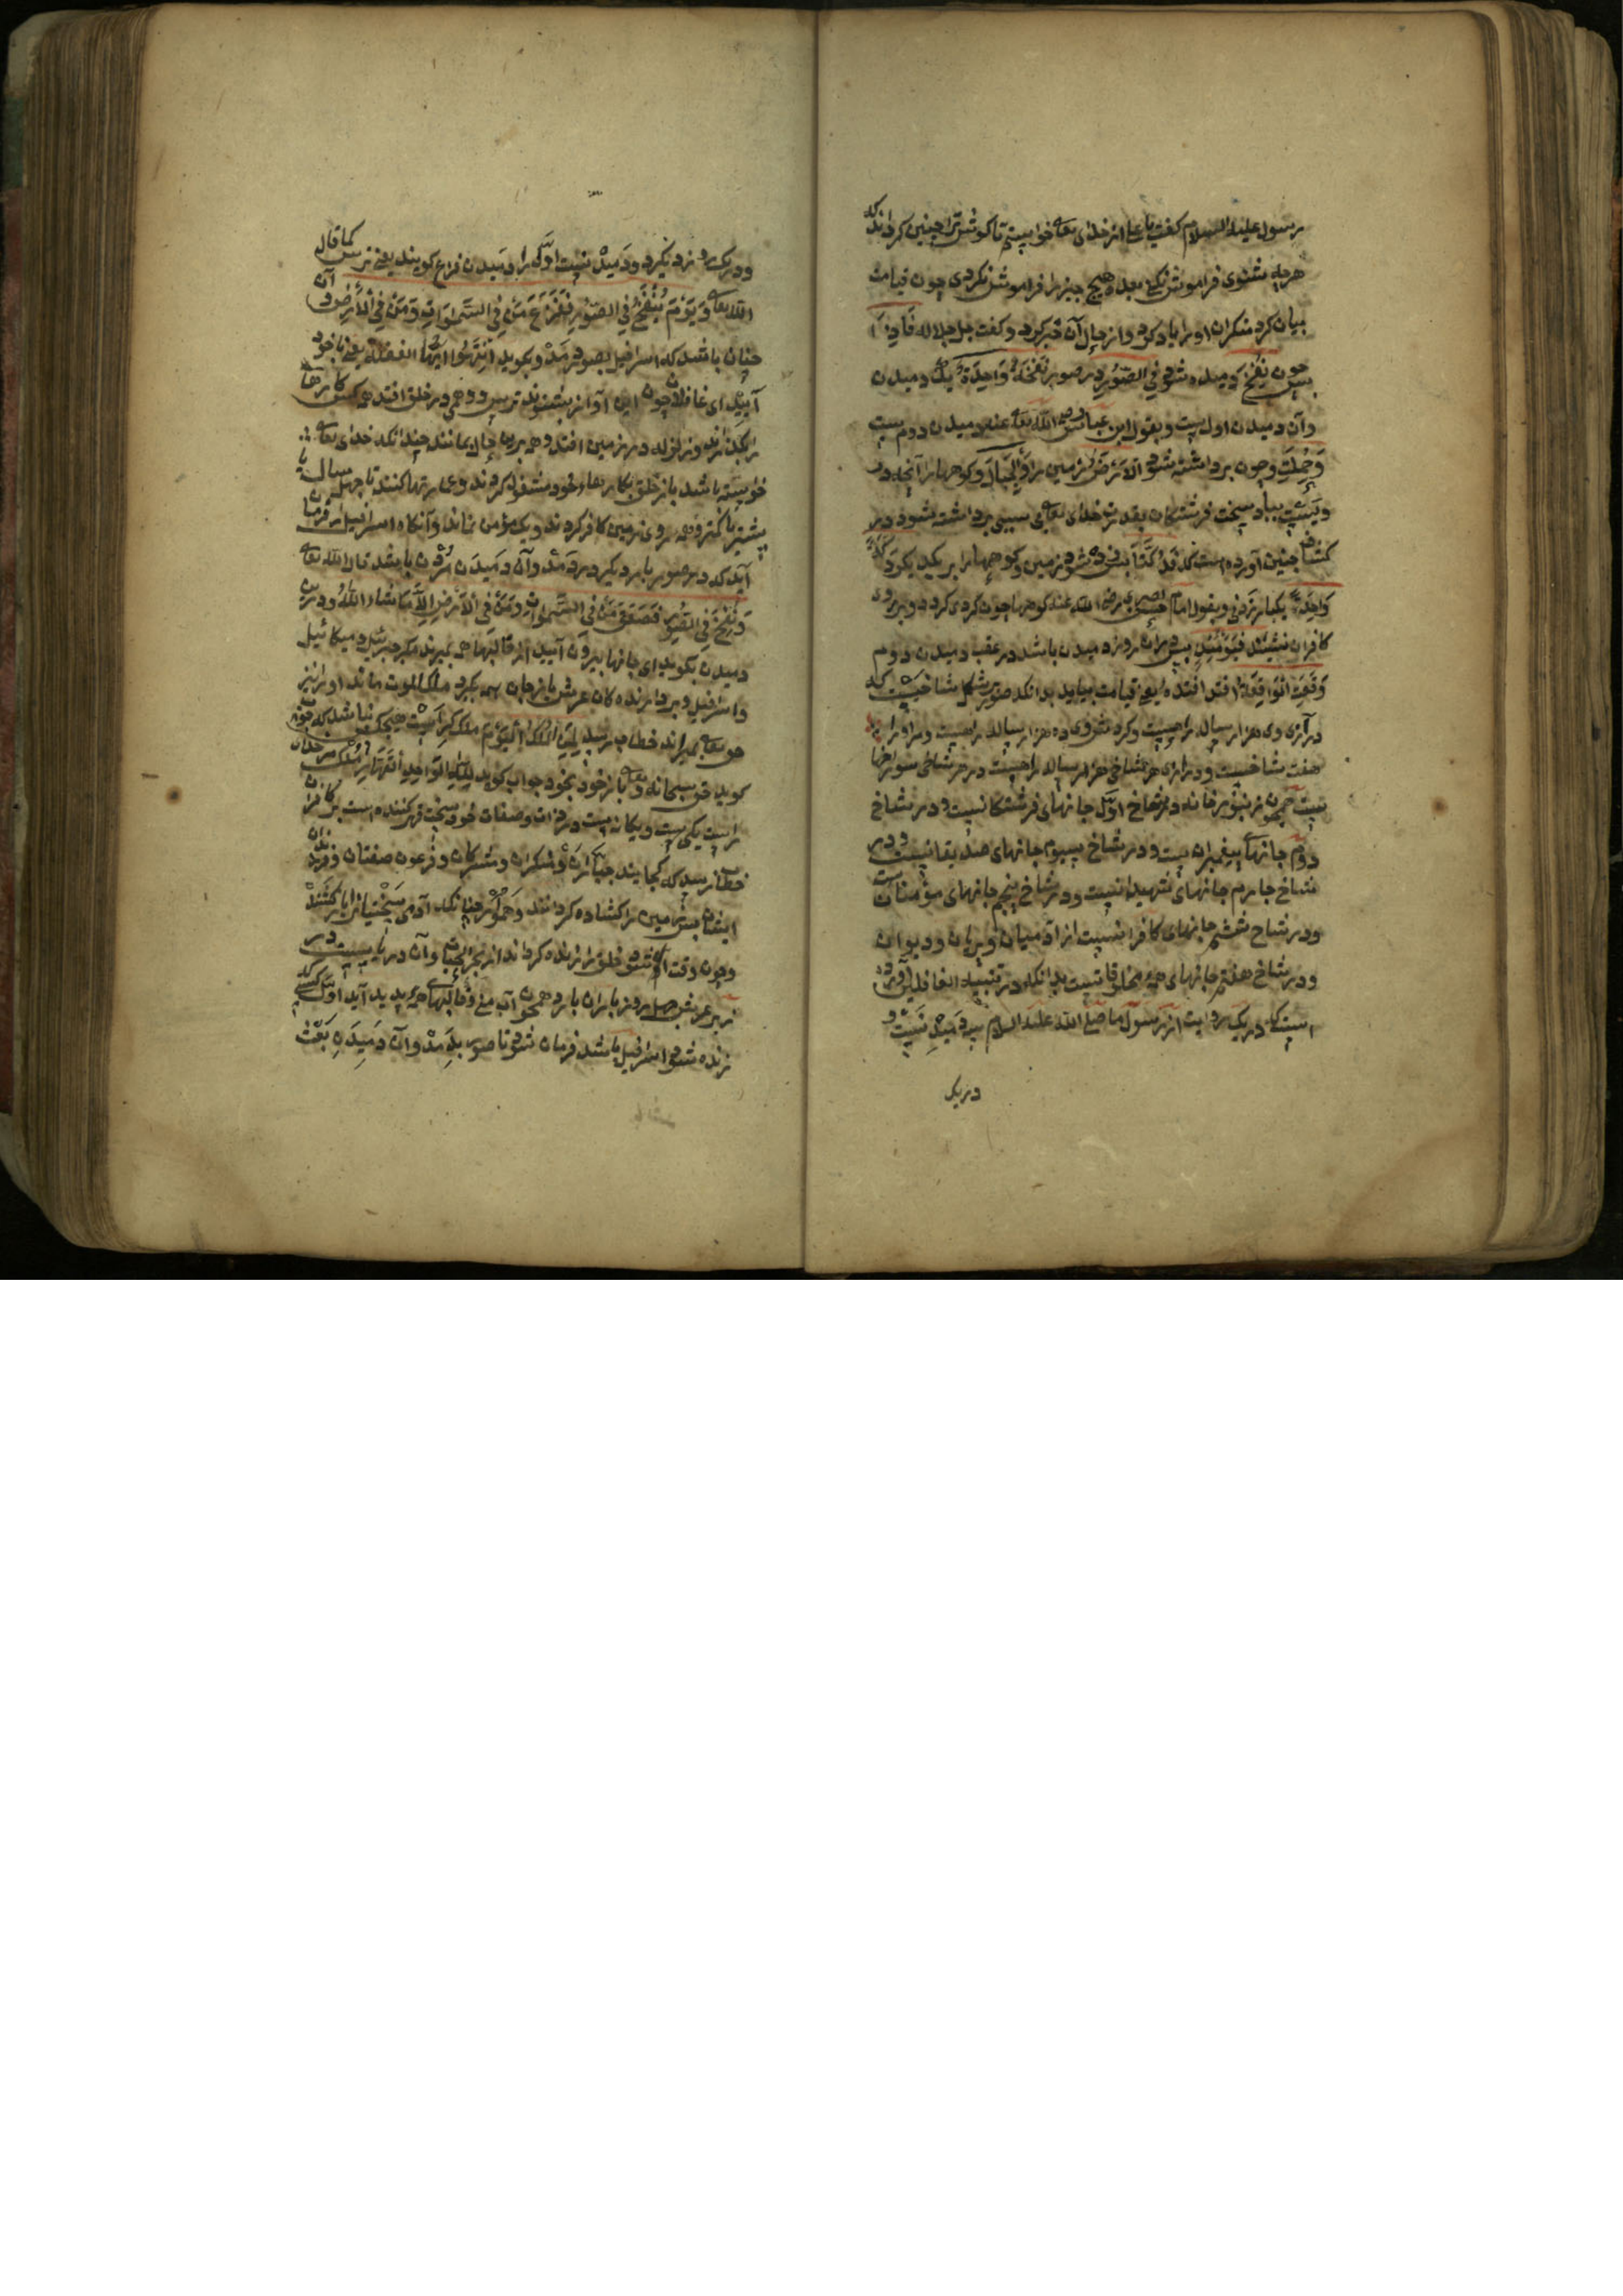 رسول علیه السلام گفت یا علی از خدای تعالی خواستم تا گوش ترا چنین گرداند که
هرچه شنوی فراموش نکنی بعد هیچ چیز را فراموش نکردی چون قیامت
بیان کرد منکران او را یاد کرد و از حال آن خبر کرد و گفت جل جلاله فَاِذَا
پس چون نُفِخَ دمیده شود فِی الصُّورِ در صور نَفْخَةٌ وَاحِدَةٌ یک دمیدن
وآن دمیدن اول است و بقول ابن عباس رضی الله تعالی عنه دمیدن دوم است
وَحُمِلَتِ و چون برداشته شود اَلْاَرْضُ زمین را وَالْجِبَالُ و کوهها را آنچه در
ویست بباد سخت فرشتگان بقدرت خدای تعالی بی سببی برداشته شود در
کشاف چنین آورده است که فَدُكَّتَا پس زده شود زمین و کوهها را بر یکدیگر دَكَّةً
وَاحِدَةً یکبار زدنی و بقول امام حسن بصری رضی الله عنه کوهها چون گردی گردد و بر روی
کافران نشیند فَيَوْمَئِذٍ پس در آن روز دمیدن باشد در عقب دمیدن دوم
وَقَعَتِ الْوَاقِعَةُ افتد افتنده یعنی قیامت بیاید بدانکه صور بشکل شاخیست که
درازی وی هزار ساله راهست و گردش وی ده هزار ساله راهست و مر او را
هفت شاخست و درازی هر شاخی هزار ساله راهست در هر شاخی سوراخها
ست چون زنبورخانه در شاخ اوّل جانهای فرشتگانست و در شاخ
دوم جانهای پیغمبران ست و در شاخ سیوم جانهای صدیقانست و در
شاخ چارم جانهای شهیدانست و در شاخ پنجم جانهای مؤمنانست
و در شاخ ششم جانهای کافرانست از آدمیان و پریان و دیوان
و در شاخ هفتم جانهای همه مخلوقاتست بدانکه در تنبیه الغافلین آورده
است که در یک روایت از رسول ما صلی الله علیه السلام سه دمیدنیست و
در یک
ودریک دو نزدیکرد و دمیدنیست اوّلکه را دمیدن فزع گویند یعنی ترس کما قال
الله تعالی وَيَوْمَ يُنْفَخُ فِي الصُّورِ فَفَزِعَ مَنْ فِي السَّمٰوَاتِ وَمَنْ فِي الْاَرْضِ و آن
چنان باشد که اسرافیل بصور دمد و بگوید اِنْتَبِهُوا اَیُّهَا الغفلة یعنی با خود
آیید ای غافلان چون این آواز بشنوند ترس و وهمی در خلق افتد همه کس کارها
را بگذارند و زلزله در زمین افتد و همه برین حال بمانند چندانکه خدای تعالی
خواسته باشد باز خلق بکارهاء خود مشغول گردند و عمارتها کنند تا چهل سال یا
بیشتر یا کمتر و همه روی زمین کافر گردند و یک مؤمن نماند و آنگاه اسرافیل را فرمان
آید که در صور بار دیگر دردمد و آن دمیدن مُردن باشد قال الله تعالی
وَنُفِخَ فِي الصُّورِ فَصَعِقَ مَنْ فِي السَّمٰوَاتِ وَمَنْ فِي الْاَرْضِ اِلَّا مَا شَاءَ اللّٰهُ و درین
دمیدن بگوید ای جانها بیرون آیید از قالبها همه بمیرند مگر جبرئیل و میکائیل
و اسرافیل و بردارنده گان عرش باز جان همه بگیرد ملک الموت بماند او را نیز
حق تعالی بمیراند خطاب رسد لِمَنِ الْمُلْكُ الْیَوْمَ ملک کراست هیچکس نباشد که جواب
گوید حق سبحانه وتعالی باز خود بخود جواب گوید لِلّٰهِ الْوَاحِدِ الْقَهَّارِ مُلک مر خدای
راست یکی ست و یگانه ست در ذات و صفات خود سخت قهر کننده است بر کافران
خطاب رسد که کجایند جبّاران و منکران و مشرکان و فرعون صفتان و فرزندان
ایشان پس زمین را گشاده گردانند و هموار چنانکه آدمی سختیان را باز کشند
و چون وقت آن شود خلق را زنده گرداند از بحر الحیات و آن دریاییست در
زیر عرش چهل روز باران بارد همچون آب منی و قالبهای همه پدید آید اوّل کسی که
زنده شود اسرافیل باشد فرمان شود تا صور بدمد و آن دمیدهِ بَعْث
باشد